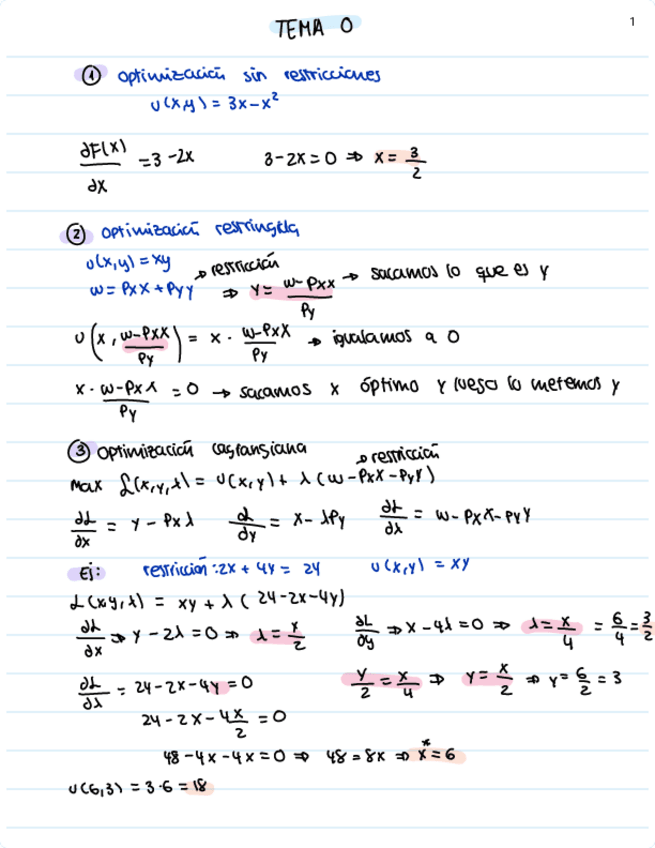 TEMA 0
1
① Optimización sin restricciones
U(x,y) = 3x-x²
∂F(x)/∂x = 3-2x    3-2x=0 ⇒ x= 3/2
② Optimización restringida
U(x,y)=xy → restricción
W= Pxx + Pyy ⇒ Y= (W-Pxx)/Py → sacamos lo que es y
U(x, (W-Pxx)/Py) = x · (W-Pxx)/Py → igualamos a 0
x · (W-Pxx)/Py = 0 → sacamos x óptimo y luego lo metemos y
③ Optimización lagrangiana → restricción
Max ℒ(x,y,λ) = U(x,y) + λ (W-Pxx-Pyy)
∂ℒ/∂x = y-Pxλ    d/dy = x-λPy    ∂ℒ/∂λ = W-Pxx-Pyy
Ej: restricción: 2x + 4y = 24    U(x,y) = xy
ℒ(x,y,λ) = xy + λ(24-2x-4y)
∂ℒ/∂x ⇒ y-2λ=0 ⇒ λ= y/2    ∂L/∂y ⇒ x-4λ=0 ⇒ λ= x/4 = 6/4 = 3/2
∂ℒ/∂λ = 24-2x-4y=0    y/2 = x/4 ⇒ y= x/2 ⇒ y= 6/2 = 3
24-2x-4x/2 = 0
48-4x-4x=0 ⇒ 48=8x ⇒ x*=6
U(6,3) = 3·6 = 18